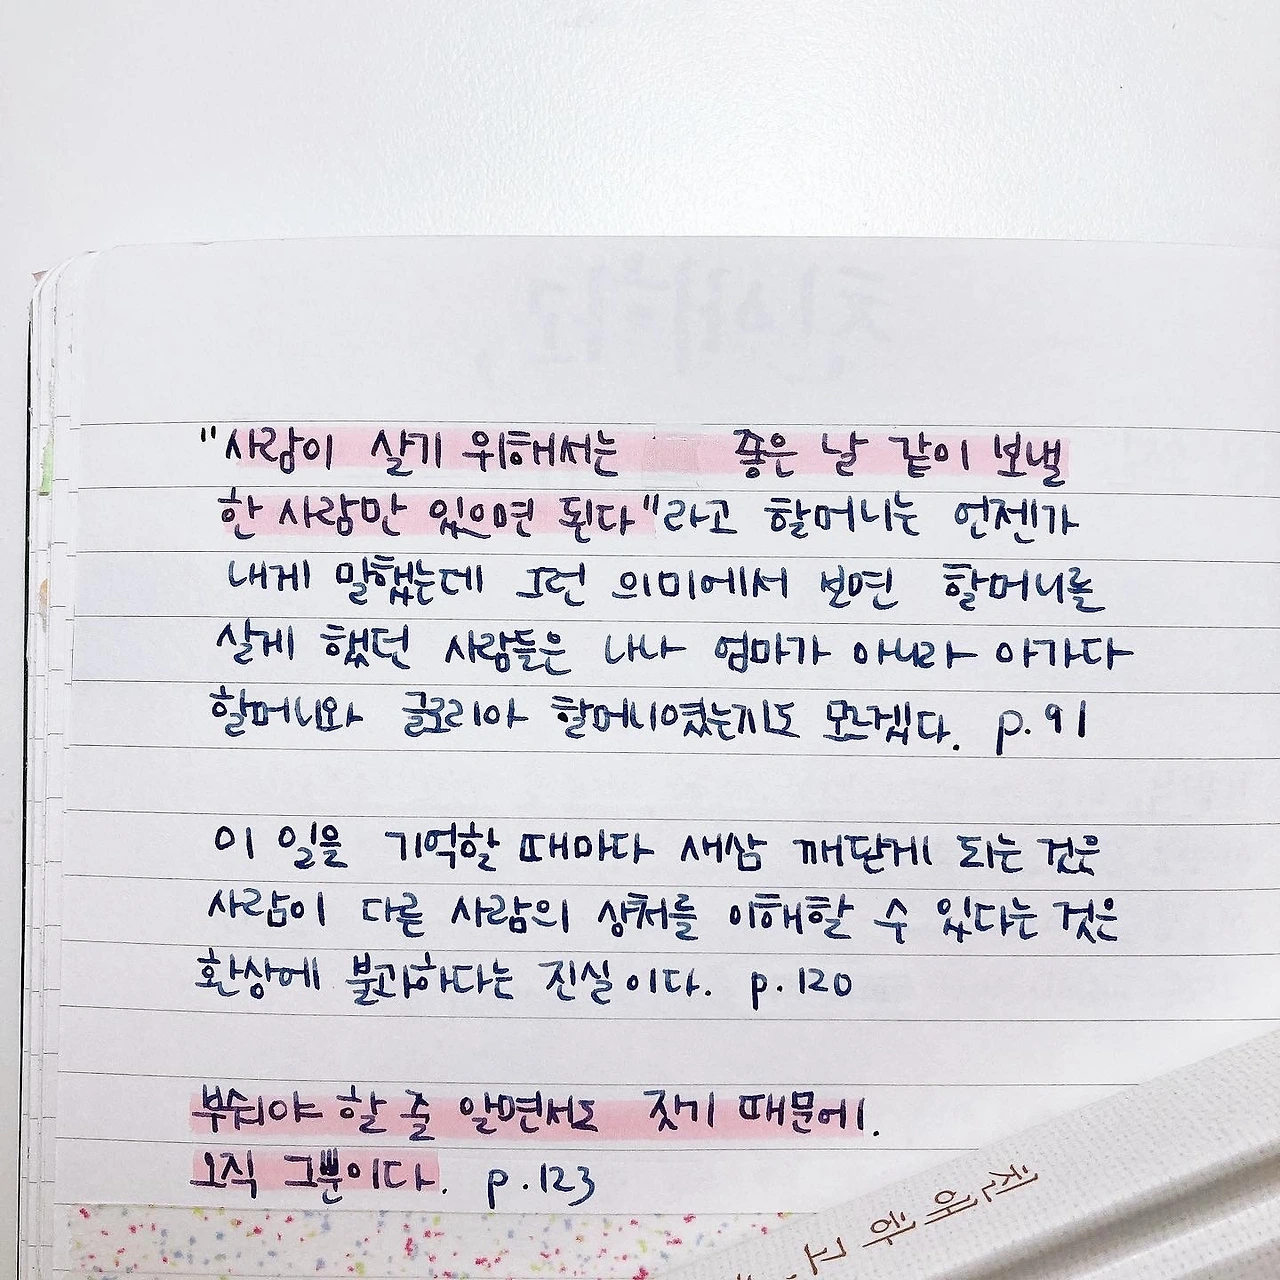 "사람이 살기 위해서는 좋은 날 같이 보낼
한 사람만 있으면 된다"라고 할머니는 언젠가
내게 말했는데 그런 의미에서 보면 할머니를
살게 했던 사람들은 나나 엄마가 아니라 아가다
할머니와 글로리아 할머니였는지도 모르겠다. p.91
이 일을 기억할 때마다 새삼 깨닫게 되는 것은
사람이 다른 사람의 상처를 이해할 수 있다는 것은
환상에 불과하다는 진실이다. p.120
부숴야 할 줄 알면서도 짓기 때문에.
오직 그뿐이다. p.123